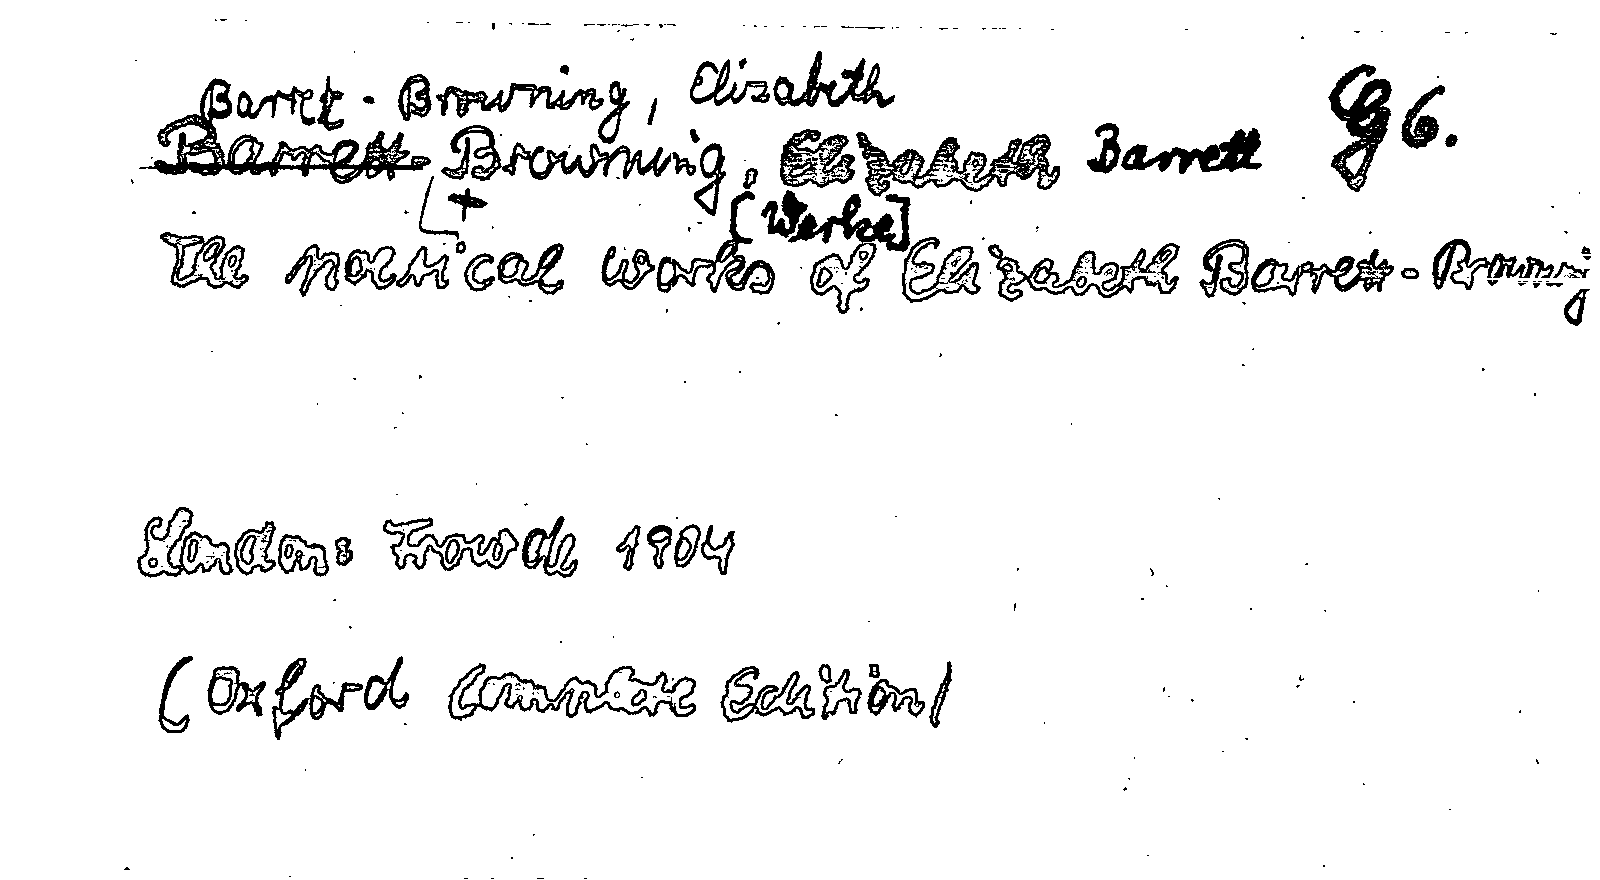 Barrett-Browning, Elizabeth
G 6.
Barrett-Browning, Elizabeth Barrett
[Werke]
The poetical works of Elizabeth Barrett-Browning
London: Frowde 1904
(Oxford Complete Edition)